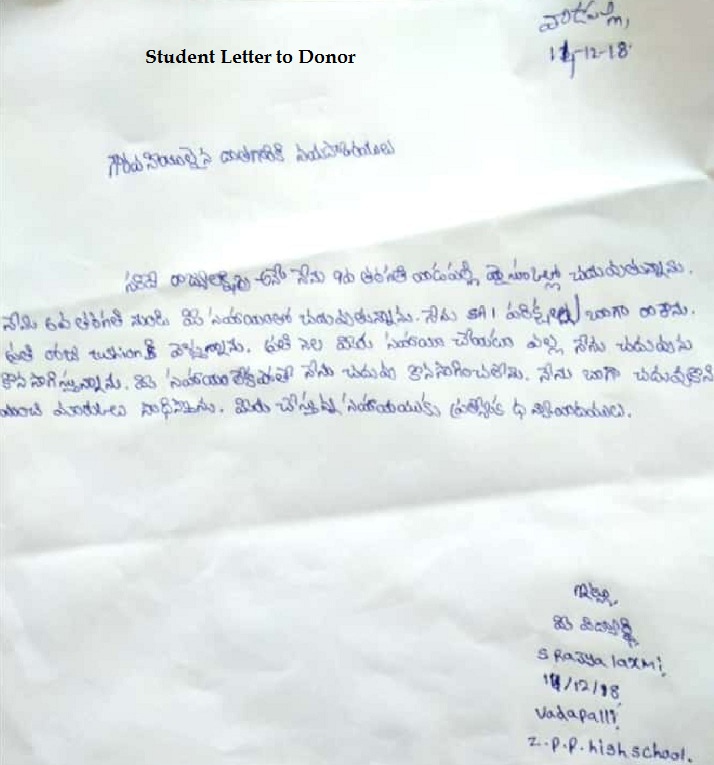 వాడపల్లి,
14-12-18
Student Letter to Donor
గౌరవనీయులైన దాతగారికి నమస్కారములు
రాజ్యలక్ష్మి అనే నేను 10వ తరగతి వాడపల్లి హైస్కూల్లో చదువుతున్నాను.
నేను 6వ తరగతి నుండి మీ సహాయంతో చదువుతున్నాను. నేను SA1 పరీక్షల్లు బాగా రాశాను.
ప్రతి రోజు tuisionకి వెళ్తున్నాను. ప్రతి నెల మీరు సహాయం చేయడం వల్ల నేను చదువును
కొనసాగిస్తున్నాను. మీ సహాయం లేకపోతే నేను చదువు కొనసాగించలేను. నేను బాగా చదువుకొని
మంచి మార్కులు సాధిస్తాను. మీరు చేస్తున్న సహాయముకు ప్రత్యేక ధన్యవాదములు.
ఇట్లు,
మీ విద్యార్థి
S Rajya laxmi,
14/12/18
Vadapalli
Z.P.P. high school.